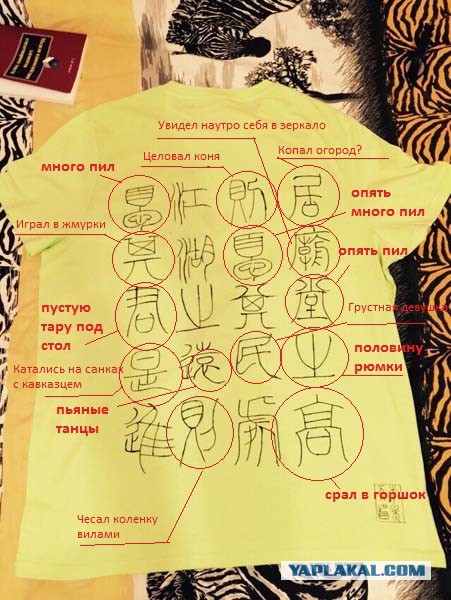 Увидел наутро себя в зеркало
Целовал коня
Копал огород?
много пил
опять
много пил
Играл в жмурки
опять пил
пустую
тару под
стол
Грустная девушка
Катались на санках
с кавказцем
половину
рюмки
пьяные
танцы
срал в горшок
Чесал коленку
вилами
居廟堂之高
則憂其民處
江湖之遠則
憂其君是進
YAPLAKAL.COM